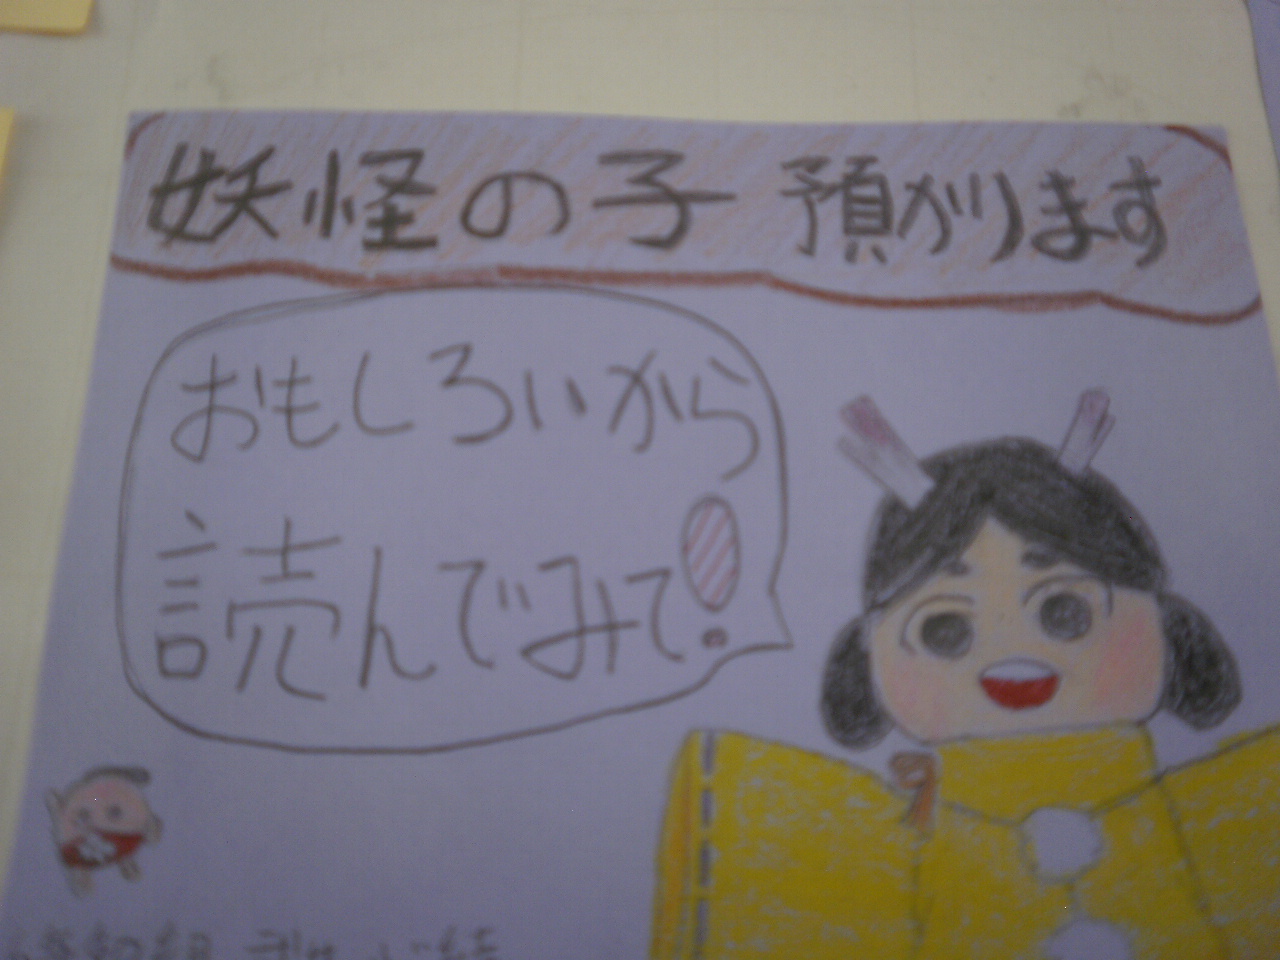 妖怪の子 預かります
おもしろいから
読んでみて!